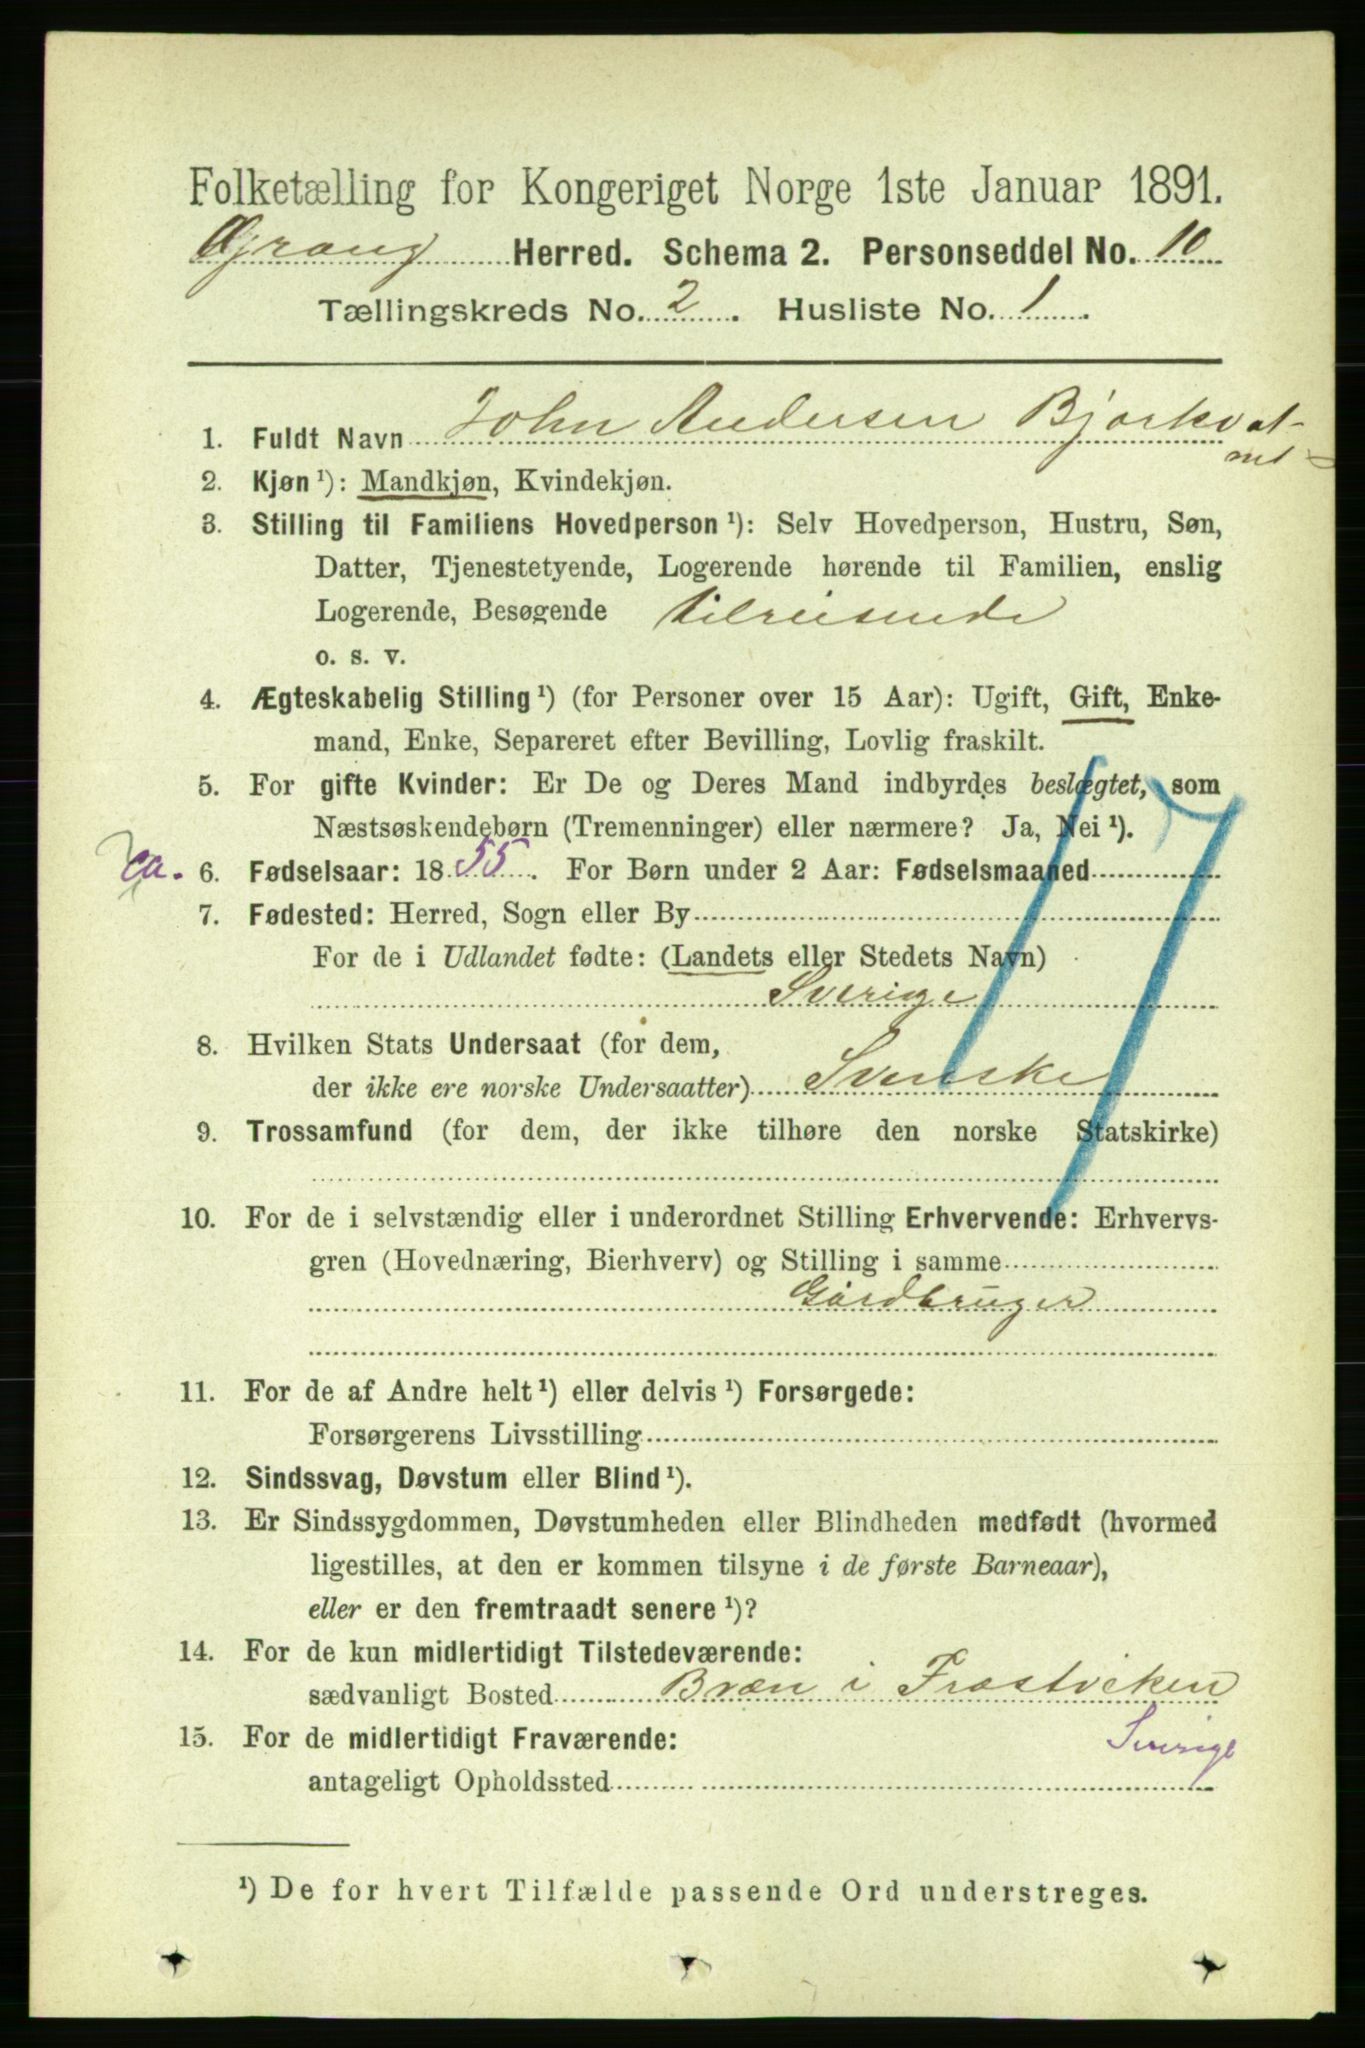 Folketælling for Kongeriget Norge 1ste Januar 1891.
Grong Herred. Schema 2. Personseddel No. 10
Tællingskreds No. 2. Husliste No. 1.
1. Fuldt Navn John Andersen Bjorkvat-
net
2. Kjøn ¹): Mandkjøn, Kvindekjøn.
3. Stilling til Familiens Hovedperson ¹): Selv Hovedperson, Hustru, Søn,
Datter, Tjenestetyende, Logerende hørende til Familien, enslig
Logerende, Besøgende tilreisende
o. s. v.
4. Ægteskabelig Stilling ¹) (for Personer over 15 Aar): Ugift, Gift, Enke-
mand, Enke, Separeret efter Bevilling, Lovlig fraskilt.
5. For gifte Kvinder: Er De og Deres Mand indbyrdes beslægtet, som
Næstsøskendebørn (Tremenninger) eller nærmere? Ja, Nei ¹).
ca. 6. Fødselsaar: 1855. For Børn under 2 Aar: Fødselsmaaned
7. Fødested: Herred, Sogn eller By
For de i Udlandet fødte: (Landets eller Stedets Navn)
Sverige
8. Hvilken Stats Undersaat (for dem,
der ikke ere norske Undersaatter) Svenske
9. Trossamfund (for dem, der ikke tilhøre den norske Statskirke)
10. For de i selvstændig eller i underordnet Stilling Erhvervende: Erhvervs-
gren (Hovednæring, Bierhverv) og Stilling i samme
Gårdbruger
11. For de af Andre helt ¹) eller delvis ¹) Forsørgede:
Forsørgerens Livsstilling
12. Sindssvag, Døvstum eller Blind ¹).
13. Er Sindssygdommen, Døvstumheden eller Blindheden medfødt (hvormed
ligestilles, at den er kommen tilsyne i de første Barneaar),
eller er den fremtraadt senere ¹)?
14. For de kun midlertidigt Tilstedeværende:
sædvanligt Bosted Bræn i Frostviken
15. For de midlertidigt Fraværende: Sverige
antageligt Opholdssted
¹) De for hvert Tilfælde passende Ord understreges.